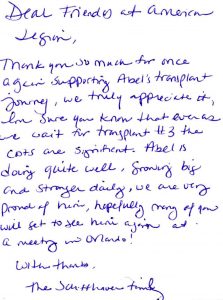 Dear Friends at American
Legion,
Thank you so much for once
again supporting Abel's transplant
Journey, we truly appreciate it,
I'm sure you know that even as
we wait for transplant #3 the
costs are significant. Abel is
doing quite well, growing big
and stronger daily, we are very
proud of him, hopefully many of you
will get to see him again at
a meeting in Orlando!
With thanks,
The family